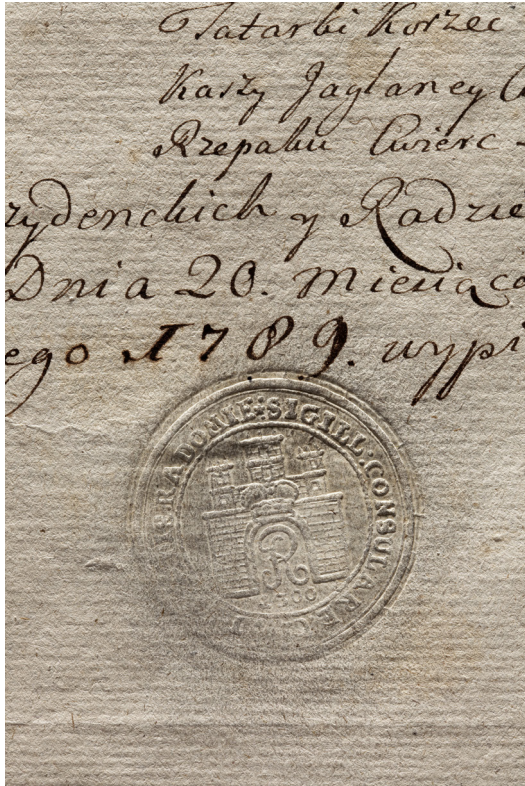 Tatarki Korzec
Kaszy Jaglaney
Rzepaku Cwierc
zydenckich y Radzie
Dnia 20. Miesiąca
ego 1789. wypi
SIGILL: CONSULARE
R
1700